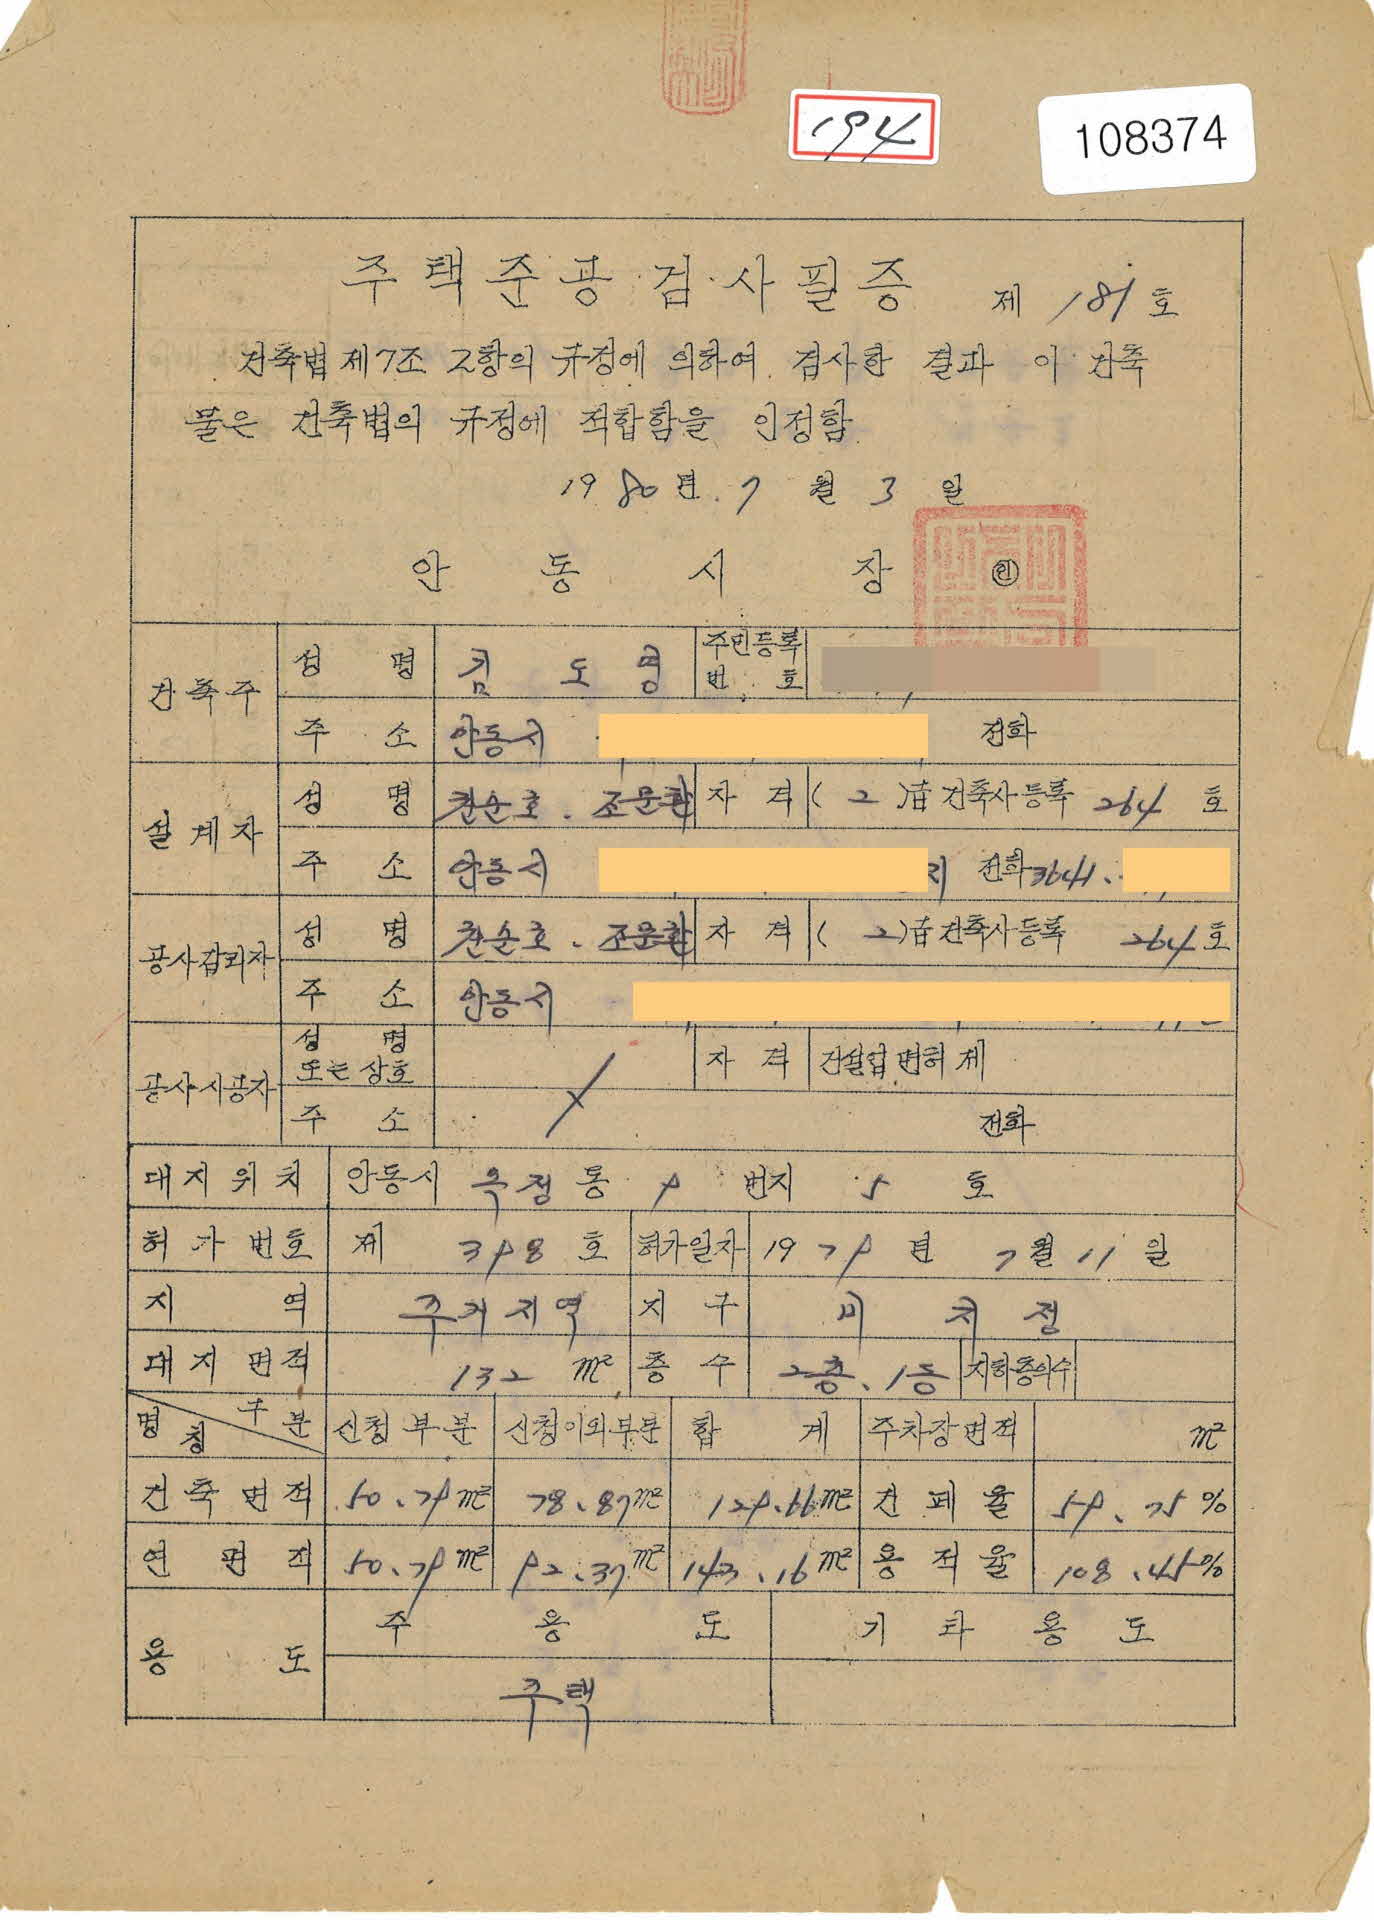 194
108374
주택준공검사필증 제 181 호
건축법 제7조 2항의 규정에 의하여 검사한 결과 이 건축
물은 건축법의 규정에 적합함을 인정함
1980년 7월 3일
안동시장 ㊞
건축주 성명 김도명 주민등록번호
주소 안동시 전화
설계자 성명 권순호. 조문환 자격 ( 2 )급 건축사등록 264 호
주소 안동시 전화 3641.
공사감리자 성명 권순호. 조문환 자격 ( 2 )급 건축사등록 264 호
주소 안동시
공사시공자 성명 또는 상호 자격 건설업면허 제
주소 전화
대지위치 안동시 옥정동 9 번지 5 호
허가번호 제 398 호 허가일자 1979년 7월 11일
지역 주거지역 지구 미지정
대지면적 132 m² 층수 2층. 1동 지하층의수
구분 명칭 신청부분 신청이외부분 합계 주차장면적 m²
건축면적 50.79m² 78.87m² 129.66m² 건폐율 59.75%
연면적 50.79m² 92.37m² 143.16m² 용적율 108.45%
용도 주용도 기타용도
주택